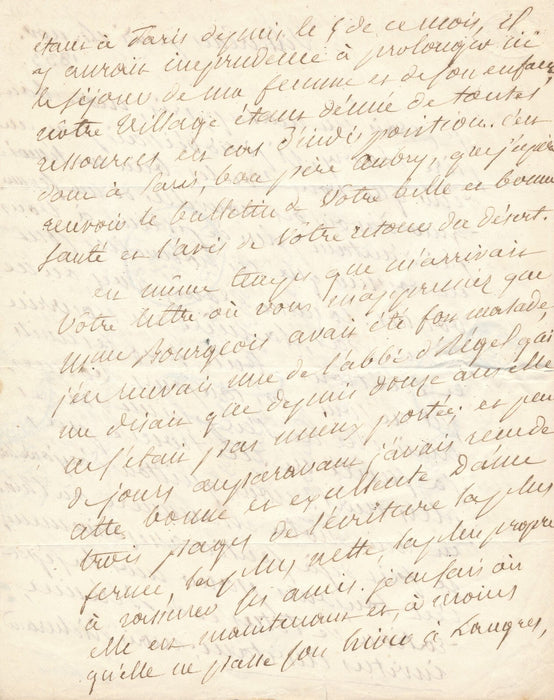 étant à Paris depuis le 5 de ce mois, il
y auroit imprudence à prolonger ici
le séjour de ma femme et de son enfant
nôtre village étant dénué de toutes
ressources en cas d'indisposition. c'est
donc à Paris, bon père Aubry, que j'espère
recevoir le bulletin de Votre belle et bonne
santé et l'avis de Vôtre retour du désert.
en même temps que m'arrivait
Votre lettre où vous m'apprenez que
Mme Bourgeois avait été fort malade,
j'en recevais une de l'abbé d' qui
me disait que depuis douze ans elle
ne s'était pas mieux portée; et peu
de jours auparavant j'avais reçu de
cette bonne et excellente Dame
trois pages de l'écriture la plus
ferme, la plus nette, la plus propre
à rassurer les amis. je ne sais où
elle est maintenant et, à moins
qu'elle ne passe son hiver à Langres,